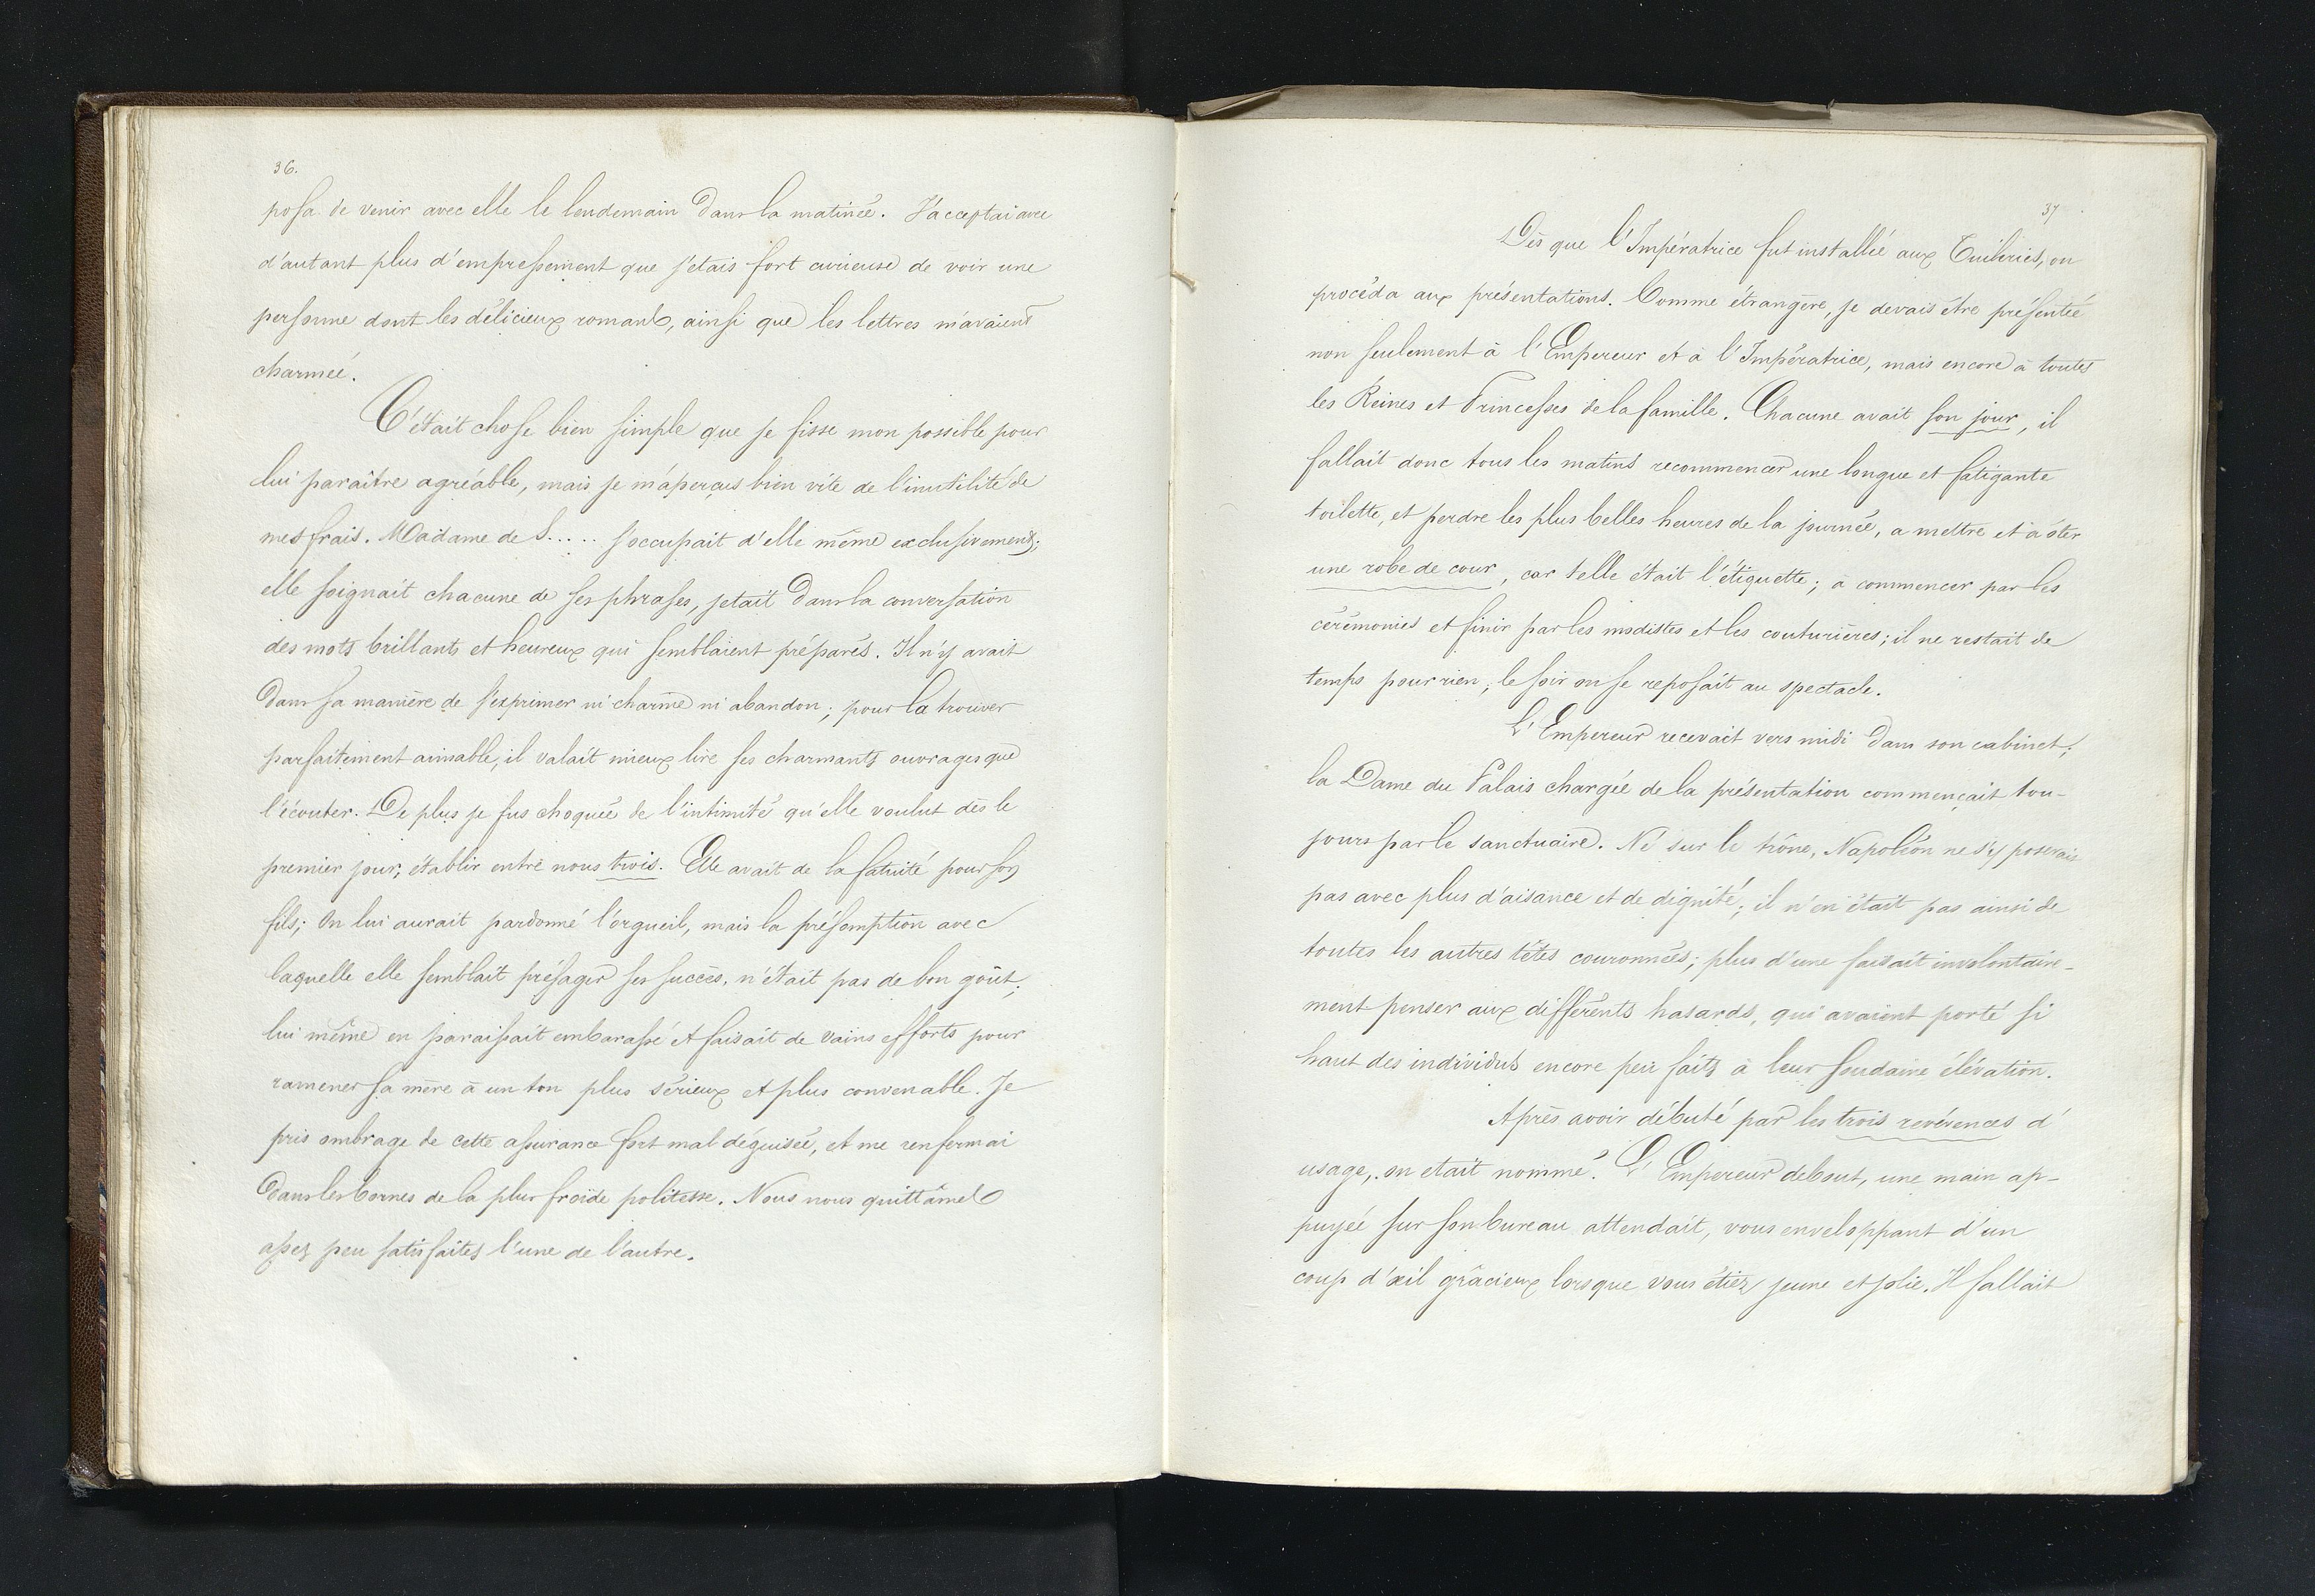 36.
posa de venir avec elle le lendemain dans la matinée. J'acceptai avec
d'autant plus d'empressement que j'étais fort curieuse de voir une
personne dont les délicieux romans, ainsi que les lettres m'avaient
charmée.
C'était chose bien simple que je fisse mon possible pour
lui paraître agréable, mais je m'aperçus bien vite de l'inutilité de
mes frais. Madame de S..... s'occupait d'elle même exclusivement;
elle soignait chacune de ses phrases, jetait dans la conversation
des mots brillants et heureux qui semblaient préparés. Il n'y avait
dans sa manière de s'exprimer ni charme ni abandon; pour la trouver
parfaitement aimable, il valait mieux lire ses charmants ouvrages que
l'écouter. De plus je fus choquée de l'intimité qu'elle voulut dès le
premier jour, établir entre nous trois. Elle avait de la fatuité pour son
fils; On lui aurait pardonné l'orgueil, mais la présomption avec
laquelle elle semblait présager ses succès, n'était pas de bon goût;
lui même en paraissait embarassé et faisait de vains efforts pour
ramener sa mère à un ton plus sérieux et plus convenable. Je
pris ombrage de cette assurance fort mal déguisée, et me renfermai
dans les bornes de la plus froide politesse. Nous nous quittâmes
assez peu satisfaites l'une de l'autre.
37
Dès que l'Impératrice fut installée aux Tuileries, on
procéda aux présentations. Comme étrangère, je devais être présentée
non seulement à l'Empereur et à l'Impératrice, mais encore à toutes
les Reines et Princesses de la famille. Chacune avait son jour, il
fallait donc tous les matins recommencer une longue et fatigante
toilette, et perdre les plus belles heures de la journée, a mettre et à ôter
une robe de cour, car telle était l'étiquette; a commencer par les
cérémonies et finir par les modistes et les couturières; il ne restait de
temps pour rien; le soir on se reposait au spectacle.
L'Empereur recevait vers midi dans son cabinet;
la Dame du Palais chargée de la présentation commençait tou-
jours par le sanctuaire. Né sur le trône, Napoléon ne s'y poserais
pas avec plus d'aisance et de dignité; il n'en était pas ainsi de
toutes les autres têtes couronnées; plus d'une faisait involontaire-
ment penser aux différents hasards, qui avaient porté si
haut des individus encore peu faits à leur soudaine élévation.
Après avoir débuté par les trois revérences d'
usage, on était nommé. L'Empereur debout, une main ap-
puyée sur son bureau attendait, vous enveloppant d'un
coup d'œil grâcieux lorsque vous étiez jeune et jolie. Il fallait